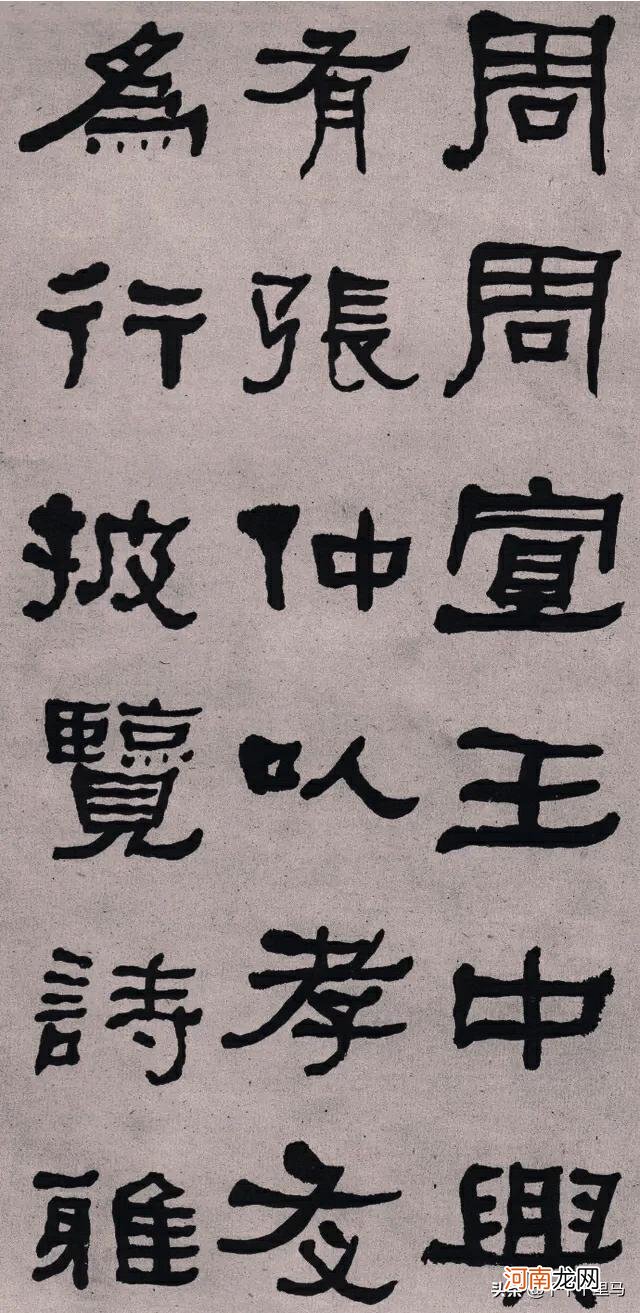 周周宣王中興
有張仲以孝友
為行披覽詩雅
河南龙网